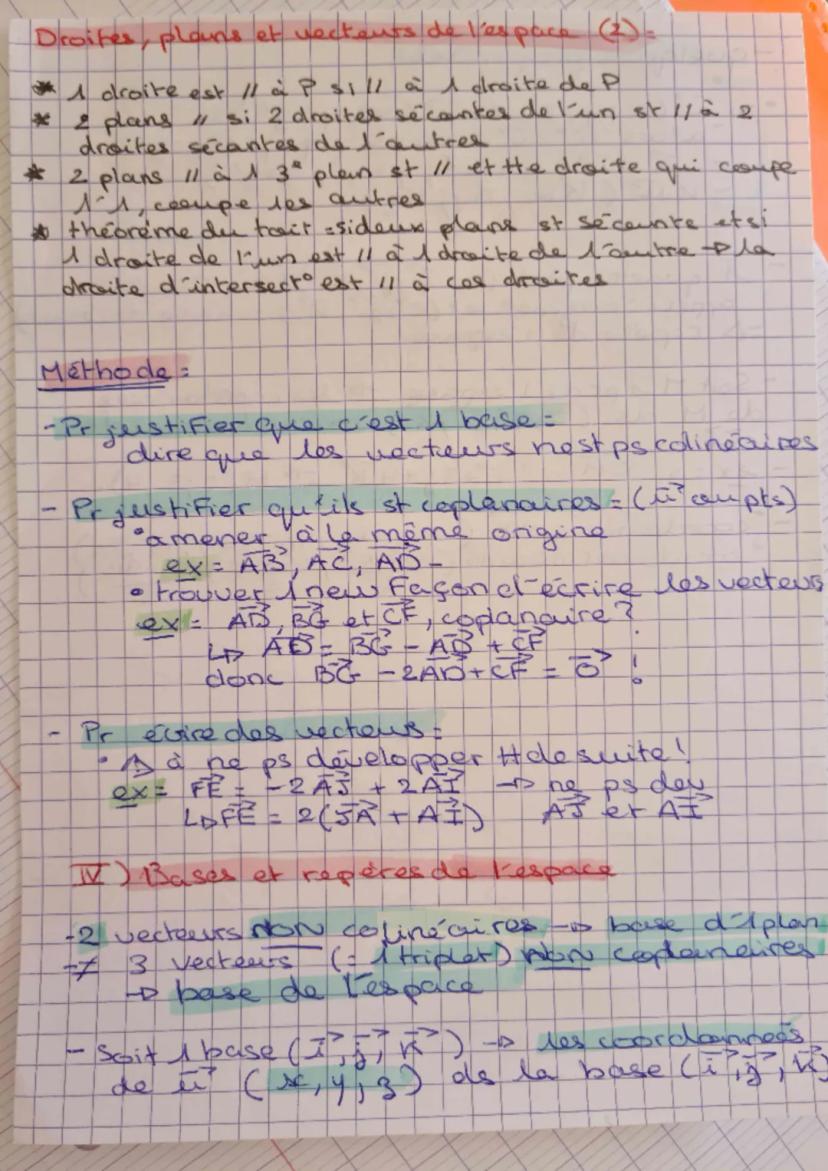 Droites, plans et vecteurs de l'espace (2) =
* 1 droite est // à P si // à 1 droite de P
* 2 plans // si 2 droites sécantes de l'un st // à 2
droites sécantes de l'autres
* 2 plans // à 1 3e plan st // et tte droite qui coupe
l'1, coupe les autres
* théorème du toit = si deux plans st sécants et si
1 droite de l'un est // à 1 droite de l'autre → la
droite d'intersect° est // à ces droites
Méthode =
- Pr justifier que c'est 1 base =
dire que les vecteurs ne st ps colinéaires
- Pr justifier qu'ils st coplanaires = (u⃗ ou pts)
• amener à la même origine
ex = AB⃗, AC⃗, AD⃗ -
• trouver 1 new façon d'écrire les vecteurs
ex = AD⃗, BG⃗ et CF⃗, coplanaire ?
↳ AD⃗ = BG⃗ - AD⃗ + CF⃗
donc BG⃗ - 2AD⃗ + CF⃗ = 0⃗ !
- Pr écrire des vecteurs =
• ⚠ à ne ps développer tt de suite !
ex = FE⃗ = -2AJ⃗ + 2AI⃗ → ne ps dev
↳ FE⃗ = 2(JA⃗ + AI⃗) AJ⃗ et AI⃗
IV) Bases et repères de l'espace
- 2 vecteurs NON colinéaires → base d'1 plan
-≠ 3 vecteurs (= 1 triplet) NON coplanaires
→ base de l'espace
- Soit 1 base (i⃗, j⃗, k⃗) → les coordonnées
de u⃗ (x, y, z) ds la base (i⃗, j⃗, k⃗)